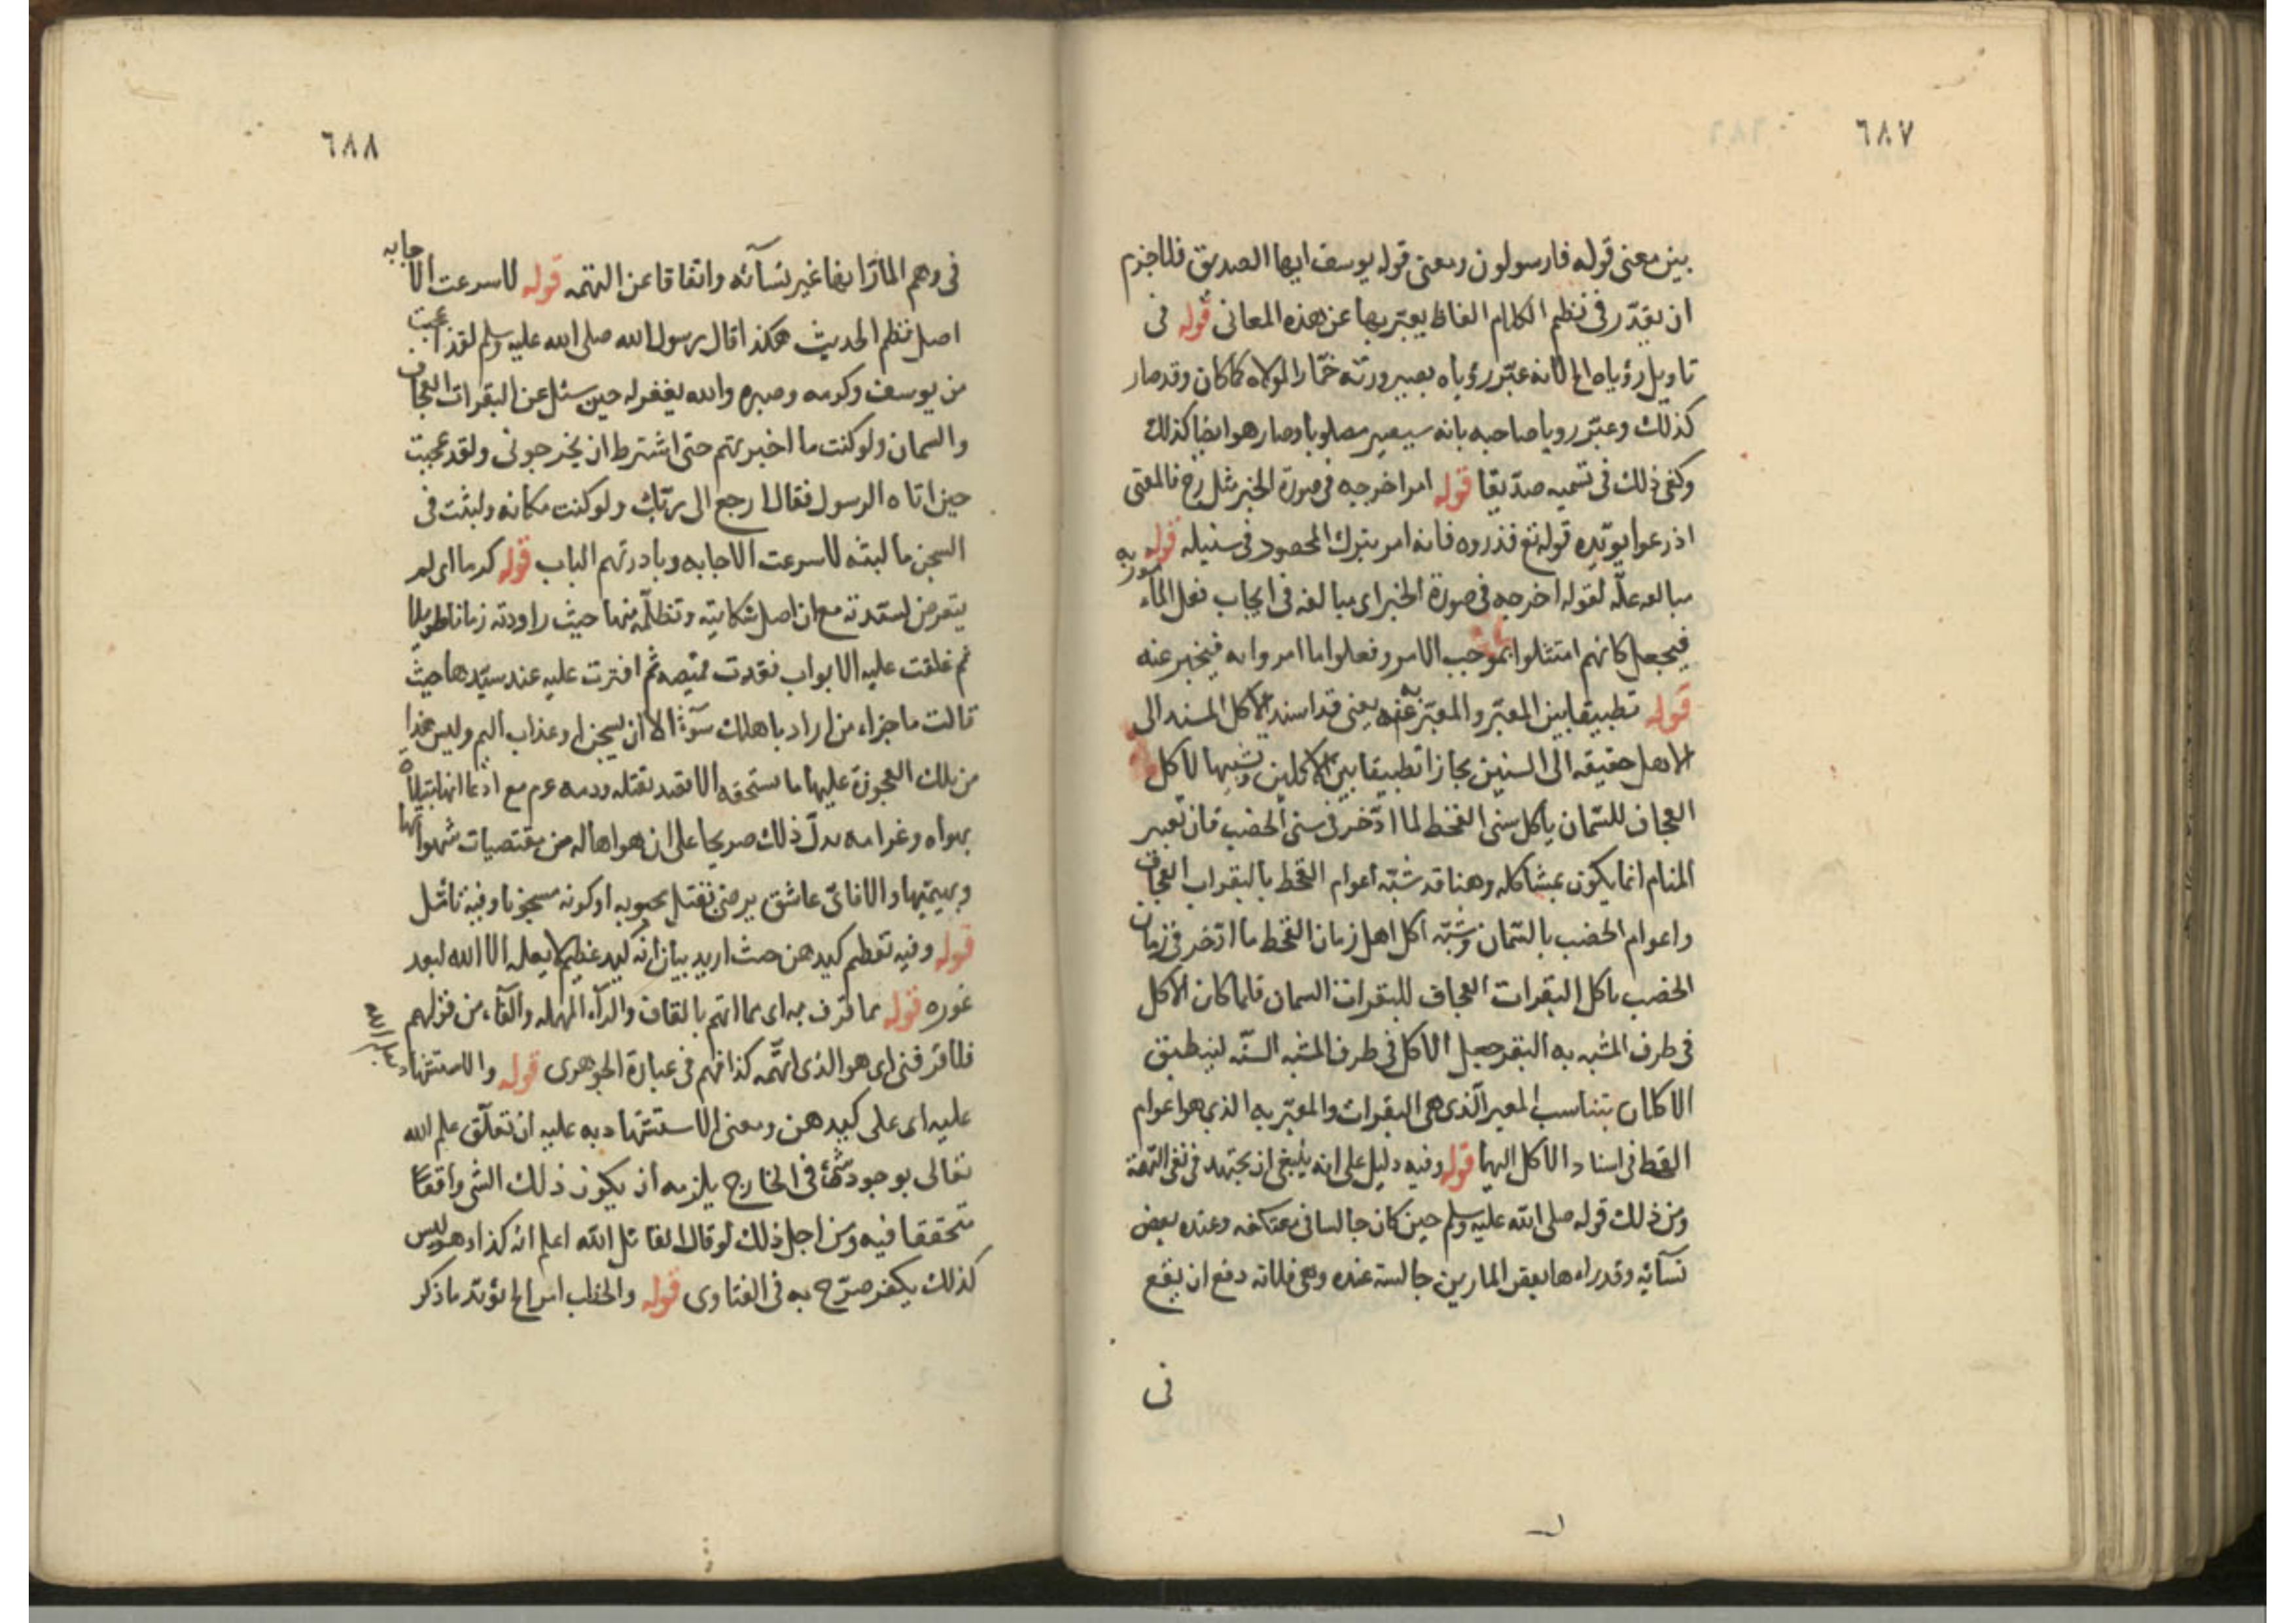 ٦٨٧
بين معنى قوله فارسلون ومعنى قوله يوسف ايها الصديق فلا جزم
ان يقدّر في نظم الكلام الفاظ يعبّر بها عن هذه المعاني قوله في
تاويل رؤياه الخ لانه عبّر رؤياه بصيرورته خمّارا لمولاه كما كان وقد صار
كذلك وعبّر رويا صاحبه بانه سيصير مصلوبا وصار هو ايضا كذلك
وكفى ذلك في تسميه صدّيقا قوله امر اخرجه في صورة الخبر فالمعنى
اذرعوا يؤيّده قوله تع فذروه فانه امر بترك المحصود في سنبله قوله
مبالغه علّه لقوله اخرجه في صورة الخبر اى مبالغه في ايجاب فعل المأمور به
فيجعل كانهم امتثلوا بموجب الامر وفعلوا ما امروا به فيخبر عنه
قوله تطبيقا بين المعبّر والمعبّر عنه يعنى قد اسند الاكل المسند الى
الاهل حقيقه الى السنين مجازا تطبيقا بين الاكلين وتشبيها لاكل
العجاف للسّمان باكل سنى القحط لما ادّخر في سنى الخصب فان تعبير
المنام انما يكون بمشاكله وهنا قد شبّه اعوام القحط بالبقرات العجاف
واعوام الخصب بالسّمان وشبّه اكل اهل زمان القحط ما ادّخر في زمان
الخصب باكل البقرات العجاف للبقرات السمان فلما كان الاكل
في طرف المشبه به البقر جعل الاكل في طرف المشبه السنّه لينطبق
الاكلان بتناسب المعبر الّذى هى البقرات والمعبّر به الذي هو اعوام
القحط في اسناد الاكل اليها قوله وفيه دليل على انه ينبغى ان يجتهد في نفى التهمة
ومن ذلك قوله صلى الله عليه وسلم حين كان جالسا في معتكفه وعنده بعض
نسآئه وقد راءها بعض المارين جالسة عنده وهى فلانه دفع ان يقع
في
٦٨٨
في وهم المارّ انها غير نسآئه واتقاقا عن التهمه قوله لاسرعت الاجابه
اصل نظم الحديث هكذا قال رسول الله صلى الله عليه وسلم لقد عجبت
من يوسف وكرمه وصبره والله يغفر له حين سئل عن البقرات العجاف
والسمان ولو كنت ما اخبرتهم حتى اشترط ان يخرجونى ولقد عجبت
حين اتاه الرسول فقال ارجع الى ربّك ولو كنت مكانه ولبثت في
السجن ما لبثه لاسرعت الاجابه وبادرتهم الباب قوله كرما اى لم
يتعرض لسيّدته مع ان اصل شكايته وتظلّمه منها حيث راودته زمانا طويلا
ثم غلقت عليه الابواب فقدت قميصه ثم افترت عليه عند سيّدها حيث
قالت ما جزاء من اراد باهلك سوءًا الا ان يسجن او عذاب اليم وليس
من تلك العجوزة عليها ما يستحقه الا بقتله ودمه مع ادعائها
بهواه وغرامه بدلّ ذلك صريحا على ان هواها له من مقتضيات شهواتها
وبهيميّتها والا فاىّ عاشق يرضى بقتل محبوبه او كونه مسجونا وفيه تامّل
قوله وفيه تعظيم كيدهن حيث اريد بيان انه كيد عظيم لا يعلمه الا الله لبعد
غوره قوله بما قرف به اى بما اتهم بالقاف والرآء المهمله والفآء من قولهم
فلان قرفنى اى هو الذى اتهمّه كذا فهم في عبارة الجوهرى قوله والاستشهاد
عليه اى على كيدهن ومعنى الاستشهاد به عليه ان تعلّق علم الله
تعالى بوجود شئ في الخارج يلزمه ان يكون ذلك الشئ واقعا
متحققا فيه ومن اجل ذلك لو قال القائل الله اعلم انه كذا وهو ليس
كذلك يكفر صرّح به في الفتاوى قوله والخطب امر الخ يؤيّد ما ذكر